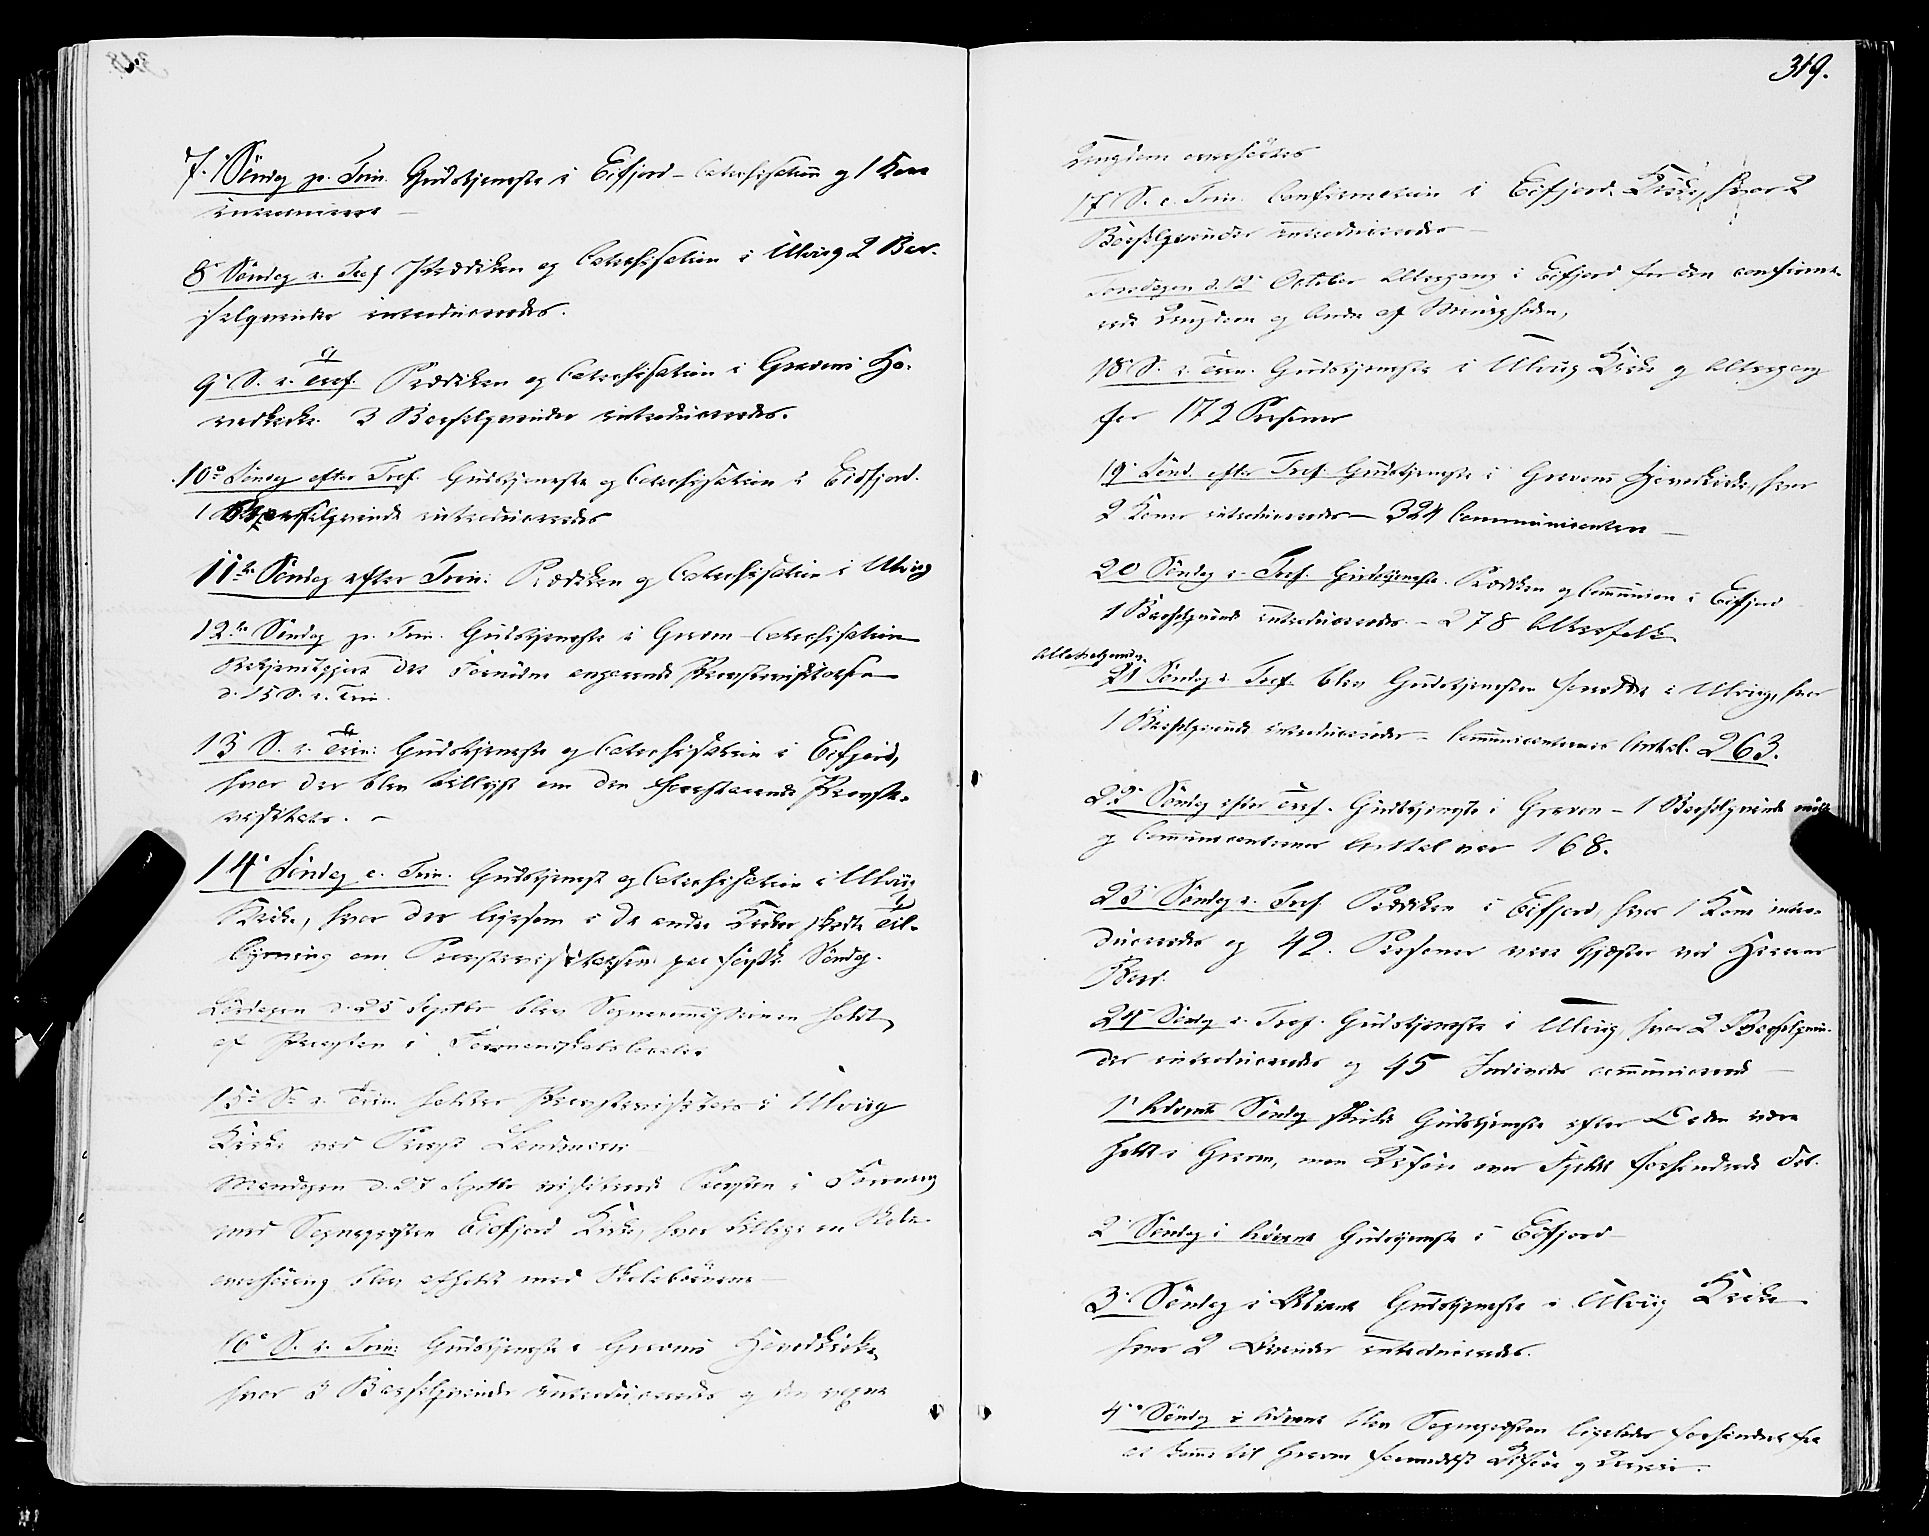 7. Söndag p. Trin. Gudstjeneste i Eifjord – Catechisation og 1 Kone
introduceret –
8 Söndag e. Tref Prædiken og Catechisation i Ulvig 2 Bar-
selqvinder introduceredes.
9 S. e. Tref. Prædiken og Catechisation i Gravens Ho-
vedkirke. 3 Barselqvinder introduceredes.
10 Söndag efter Tref. Gudstjeneste og Catechisation i Eidfjord.
1 Barselqvinde introduceredes
11te Söndag efter Trin: Prædiken og Catechisation i Ulvig
12te Söndag p. Trin. Gudstjeneste i Graven – Catechisation
Bekjendtgjort det Fornödne angaaende Provstevisitatsen
d. 15 S. e. Trin.
13 S. e. Trin: Gudstjeneste og Catechisation i Eifjord,
hvor der blev tillyst om den forestaaende Provste-
visitats. –
14 Söndag e. Trin. Gudstjeneste og Catechisation i Ulvig
Kirke, hvor der ligesom i de andre Kirker skedte Til-
lysning om Provstevisitatsen paa förstk. Söndag.
Löverdagen d. 25 Septbr blev Skolecommissionen holdt
af Provsten i Formandskabslocalet
15 S. e. Trin. holdtes Provstevisitats i Ulvig
Kirke ved Provst
Mandagen d. 27 Septbr visiterede Provsten i Forening
med Sognepresten Eidfjord Kirke, hvor tillige en Skole-
overhöring blev afholdt med Skolebörnene –
16 S. e. Trin: Gudstjeneste i Gravens Hovedkirke,
hvor 3 Barselqvinder introduceredes og den
319.
Ungdom overhörtes
17 S. e. Trin. Confirmation i Eifjord Kirke, hvor 2
Barselqvinder introduceredes –
Torsdagen d. 12 October Altergang i Eifjord for den confirme-
rede Ungdom og Andre af Menigheden,
18 S. e. Trin. Gudstjeneste i Ulvig Kirke og Altergang
for 172 Personer
19 Sönd. efter Tref. Gudstjeneste i Gravens Hovedkirke, hvor
2 Koner introduceredes – 324 Communicanter –
20 Söndag e. Tref. Gudstjeneste. Prædiken og Communion i Eifjord
1 Barselqvinde introduceredes – 278 Altersfolk
Allehelgensdag.
21 Söndag e. Tref. blev Gudstjenesten forrettet i Ulvig, hvor
1 Barselqvinde introduceredes – Communicanternes Antal 263.
22 Söndag efter Tref. Gudstjeneste i Graven – 1 Barselqvinde
og Communicanternes Antal var 168.
23 Söndag e. Tref Prædiken i Eifjord, hvor 1 Kone intro-
duceredes og 42. Personer vare Gjæster ved Herrens
Bord.
24 Söndag e. Tref. Gudstjeneste i Ulvig, hvor 2 Barselqvin-
der introduceredes og 45 Individer communicerede –
1 Advents Söndag skulde Gudstjeneste efter Orden være
holdt i Graven, men Uföre over Fjeldet forhindrede det.
2 Söndag i Advent Gudstjeneste i Eifjord –
3 Söndag i Advent Gudstjeneste i Ulvig Kirke
hvor 2 Qvinder introduceredes.
4de Söndag i Advent blev Sognepresten ligeledes forhindret fra
at komme til Graven formedelst Uföre og Uveir.